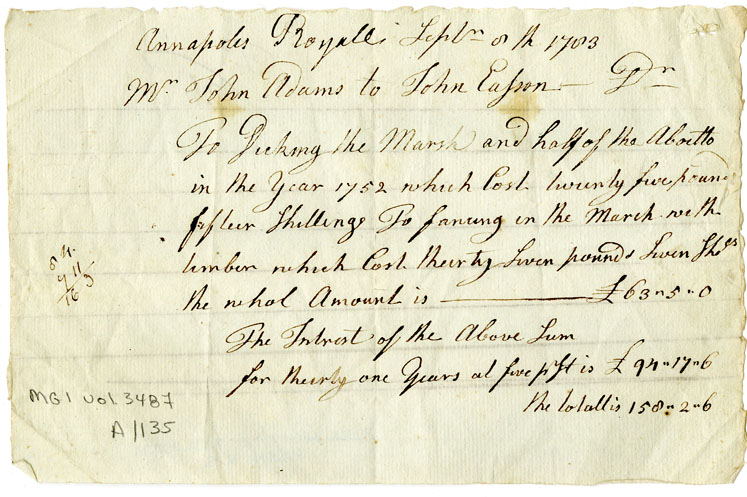 Annapoles Royall Septbr 8th 1783
Mr John Adams to John Easson — Dr
To Dicking the Marsh and half of the Aboetto
in the Year 1752 which Cost twenty five pounds
fifteen Shillings To fancing in the March with
timber which Cost thirty Seven pounds Seven Shos
the whol Amount is — £63"5"0
The Intrest of the Above Sum
for thirty one Years at five pr Ct is £94"17"6
the totall is 158"2"6
84.
9 11
16 5
MG1 vol. 3487
A/135